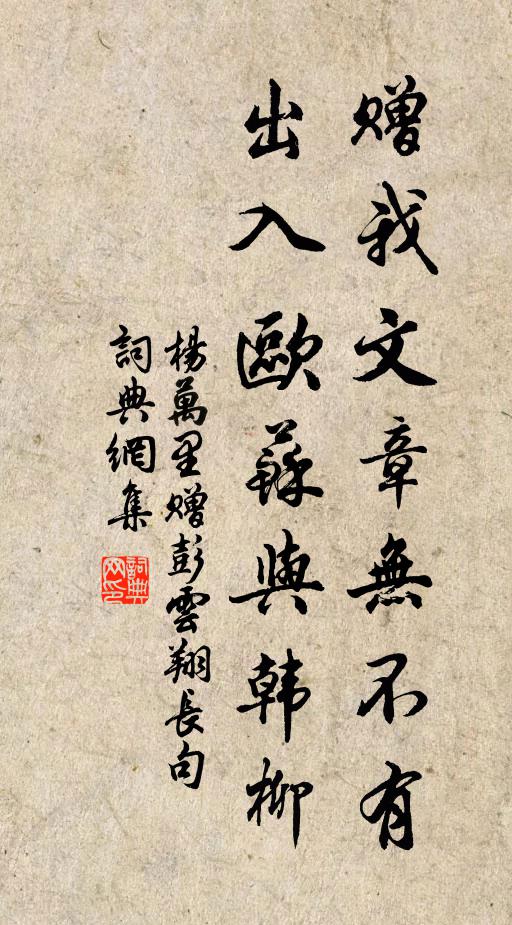 赠我文章無不有
出入歐蘇與韩柳
楊萬里赠彭雲翔長句
詞典網集
詞典網印